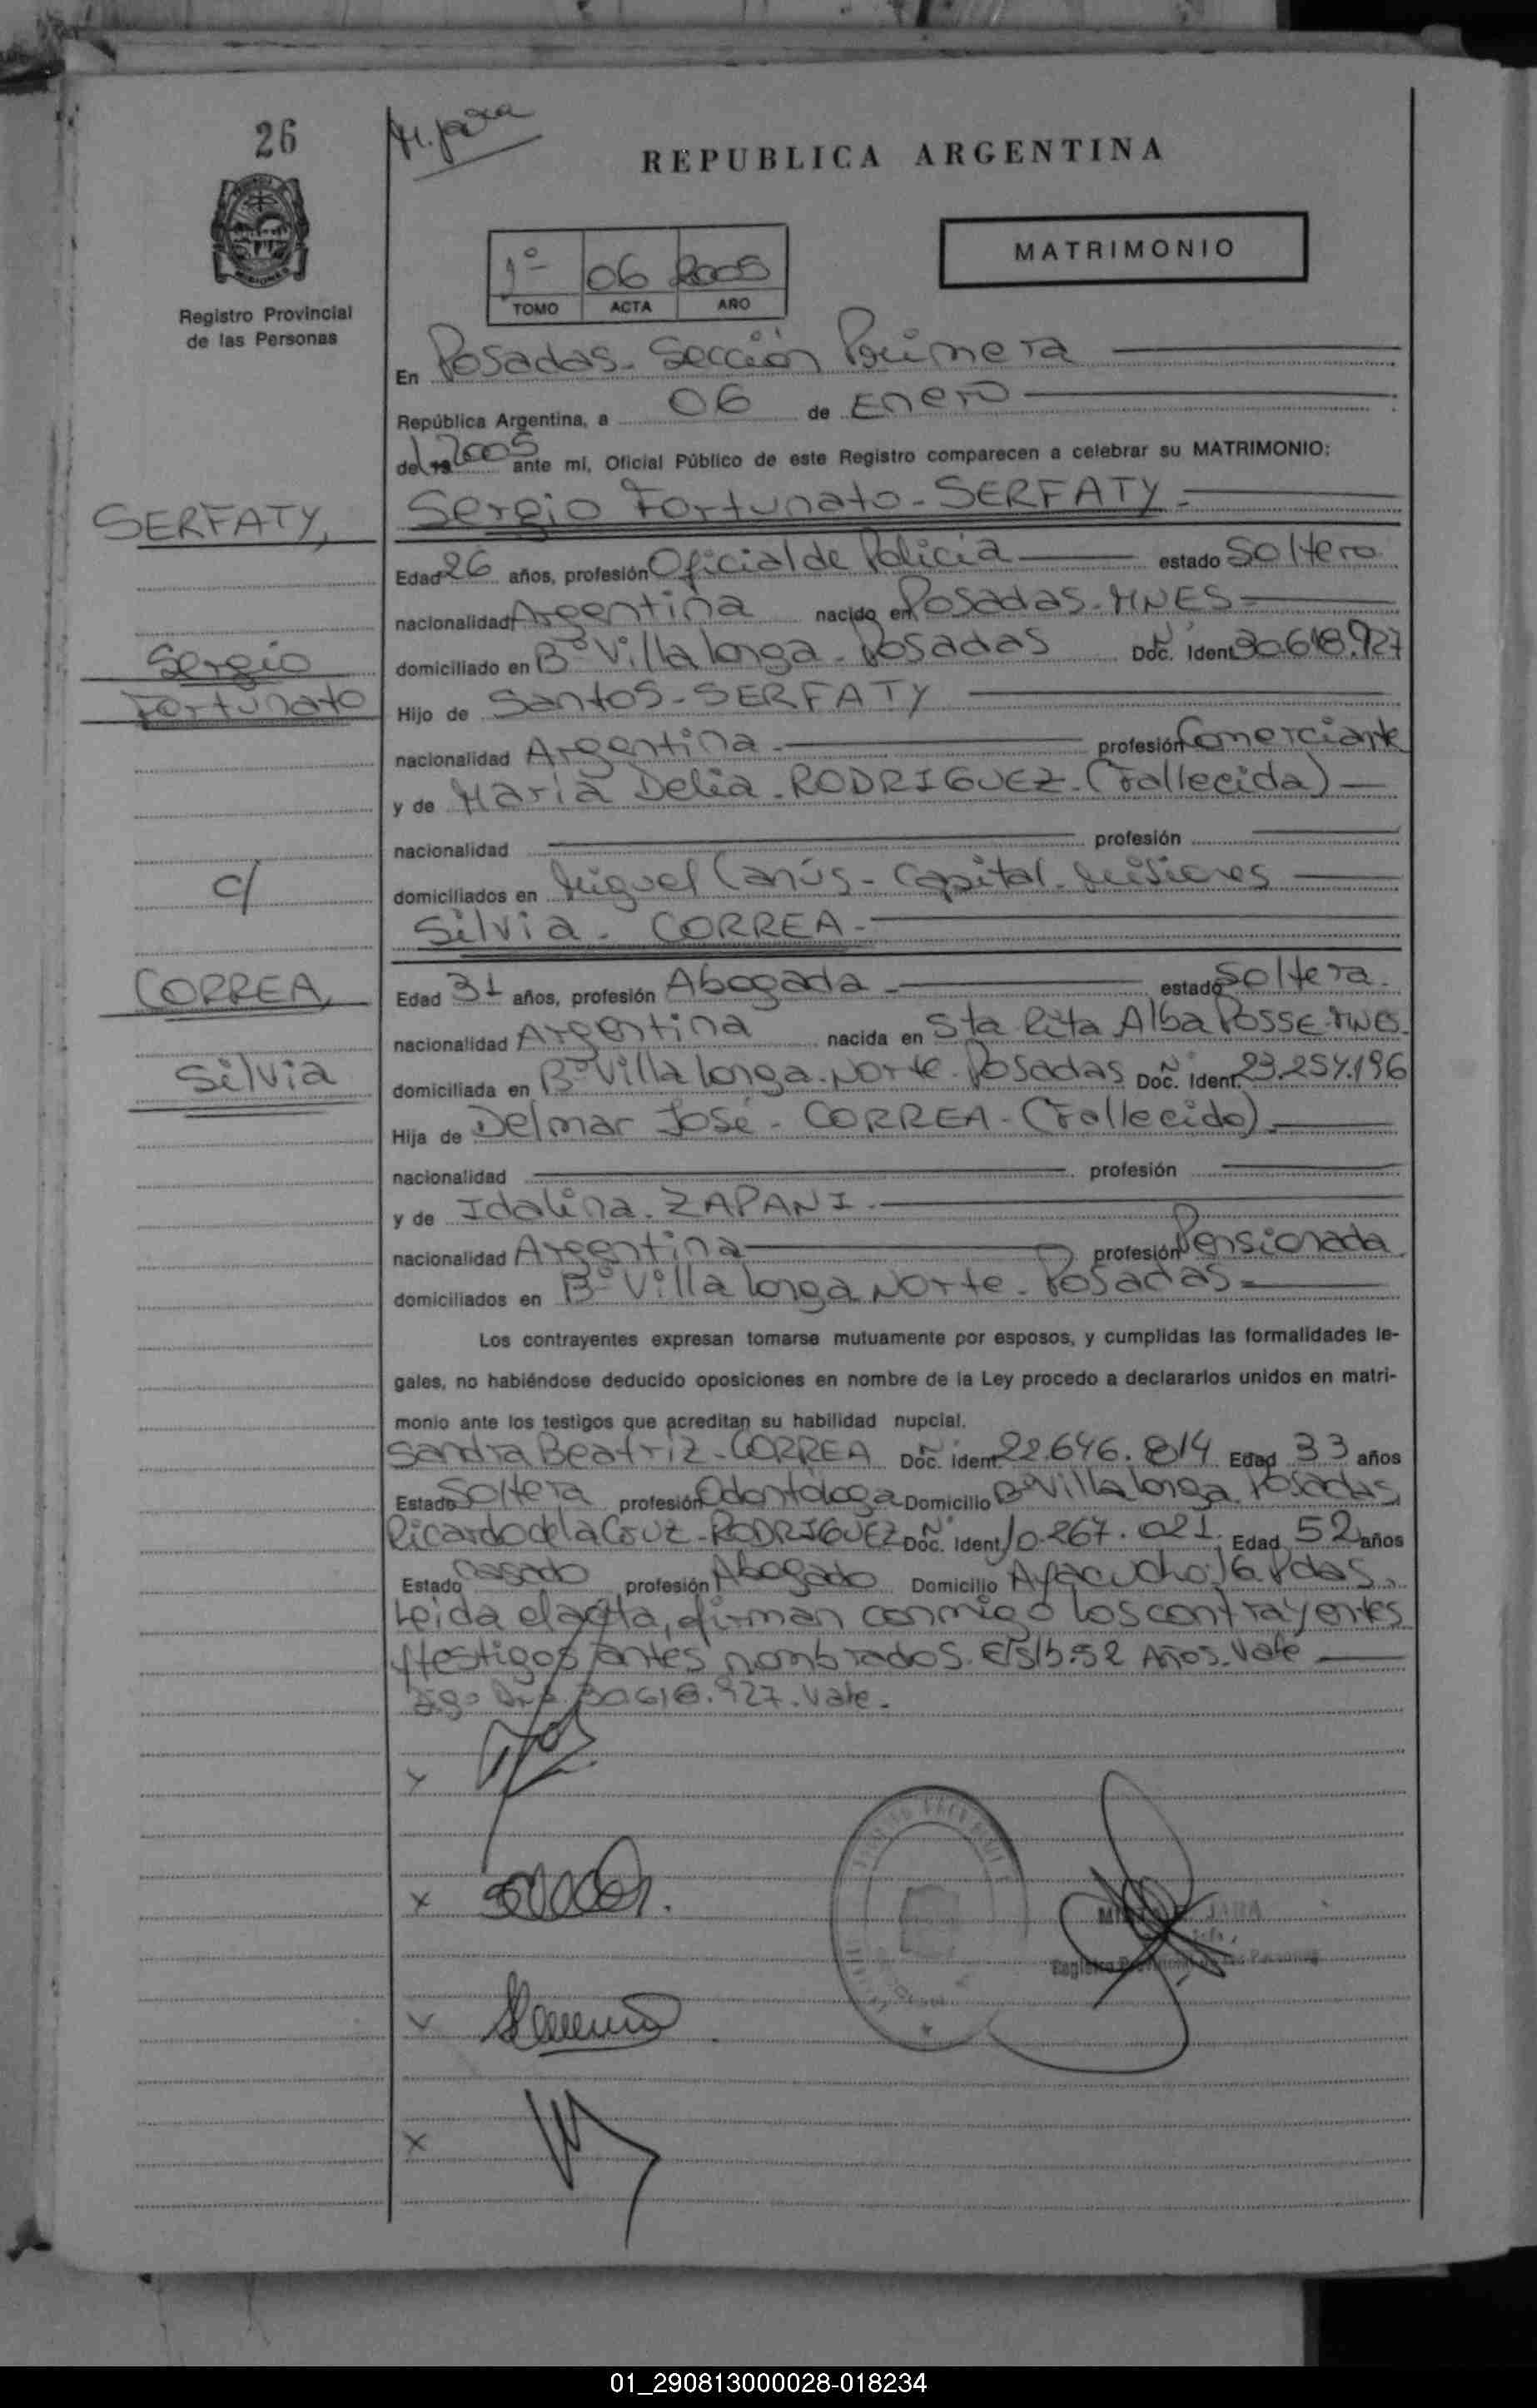 26
REPUBLICA ARGENTINA
MATRIMONIO
1º 06 2005
TOMO ACTA AÑO
Registro Provincial
de las Personas
En Posadas - Sección Primera
República Argentina, a 06 de Enero
del 2005 ante mí, Oficial Público de este Registro comparecen a celebrar su MATRIMONIO:
SERFATY,
Sergio Fortunato - SERFATY -
Edad 26 años, profesión Oficial de Policía estado Soltero
nacionalidad Argentina nacido en Posadas - MNES -
Sergio
domiciliado en Bº Villa longa - Posadas Doc. Ident. Nº 30.618.927
Fortunato
Hijo de Santos - SERFATY
nacionalidad Argentina - profesión Comerciante
y de María Delia - RODRIGUEZ - (Fallecida)
nacionalidad profesión
c/
domiciliados en Miguel Lanús - Capital - Misiones
Silvia - CORREA -
CORREA,
Edad 31 años, profesión Abogada - estado Soltera -
nacionalidad Argentina nacida en Sta Rita Alba POSSE - MNES -
Silvia
domiciliada en Bº Villa longa - Norte - Posadas Doc. Ident. Nº 23.257.196
Hija de Delmar José - CORREA - (Fallecido) -
nacionalidad profesión
y de Idalina - ZAPANI -
nacionalidad Argentina profesión Pensionada
domiciliados en Bº Villa longa Norte - Posadas -
Los contrayentes expresan tomarse mutuamente por esposos, y cumplidas las formalidades le-
gales, no habiéndose deducido oposiciones en nombre de la Ley procedo a declararlos unidos en matri-
monio ante los testigos que acreditan su habilidad nupcial.
Sandra Beatriz - CORREA Doc. Ident. Nº 22.646.814 Edad 33 años
Estado Soltera profesión Odontóloga Domicilio Bº Villa longa Posadas
Ricardo de la Cruz - RODRIGUEZ Doc. Ident. Nº 10.267.021 Edad 52 años
Estado Casado profesión Abogado Domicilio Ayacucho Pdas.
Leida el acta, firman conmigo los contrayentes
y testigos antes nombrados. E/S/b: 52 Años. Vale
30.618.927. Vale.
JARA
Registro Provincial de las Personas
01_290813000028-018234